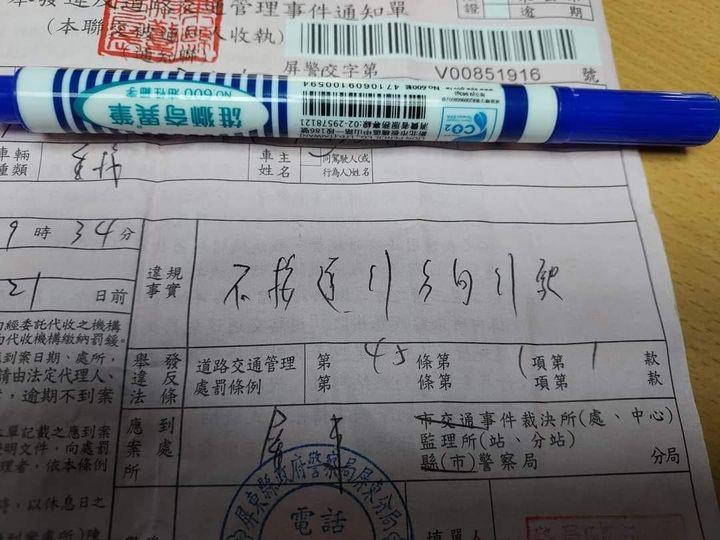 舉發違反道路交通管理事件通知單
(本聯
收執)
證
逾
屏警交字第 V00851916 號
雄獅奇異筆
NO.600 油性 細字
No.600藍 4710609100594
消費者服務專線:02-29578121
CO2
車輛種類
車主姓名
同駕駛人(或行為人)姓名
9 時 34 分
21 日前
違規事實
不按遵行方向行駛
經委託代收之機構
代收機構繳納罰鍰。
到案日期、處所,
請由法定代理人、
,逾期不到案
舉發違反法條
道路交通管理處罰條例
第 45 條第 1 項第 1 款
第 條第 項第 款
單記載之應到案
明文件,向處罰
理者,依本條例
時,以休息日之
應到案處所
屏東
市交通事件裁決所(處、中心)
監理所(站、分站)
縣(市)警察局 分局
屏東縣政府警察局屏東分局
電話
填單人